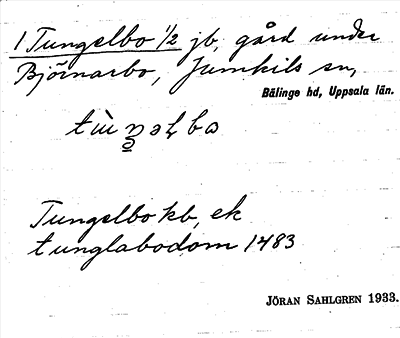 1 Tungelbo ½ jb, gård under
Björnarbo, Jumkils sn,
Bälinge hd, Uppsala län.
Tungelbo kb, ek
tunglabodom 1483
JÖRAN SAHLGREN 1933.